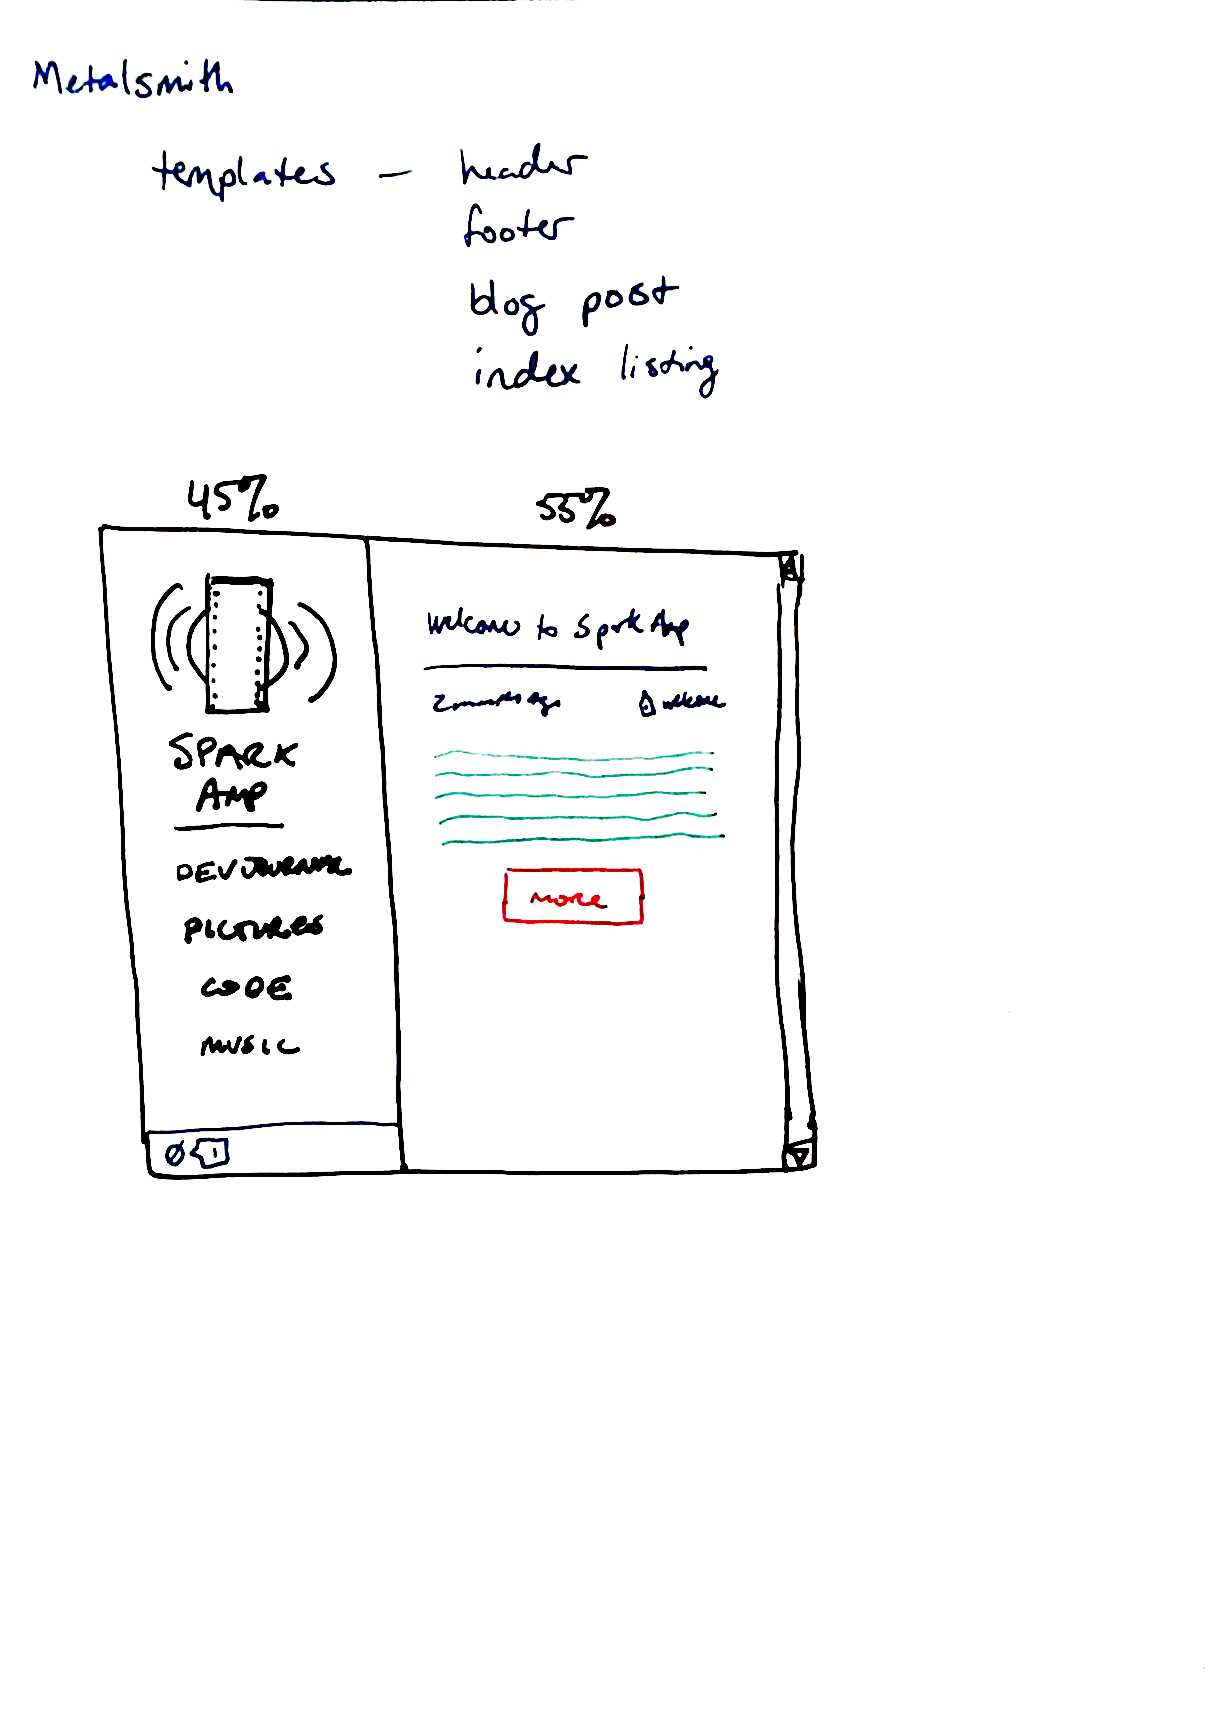 Metalsmith
templates - header
footer
blog post
index listing
45%
55%
SPARK
AMP
DEV JOURNAL
PICTURES
CODE
MUSIC
Welcome to Spark Amp
2 minutes ago
welcome
MORE
1